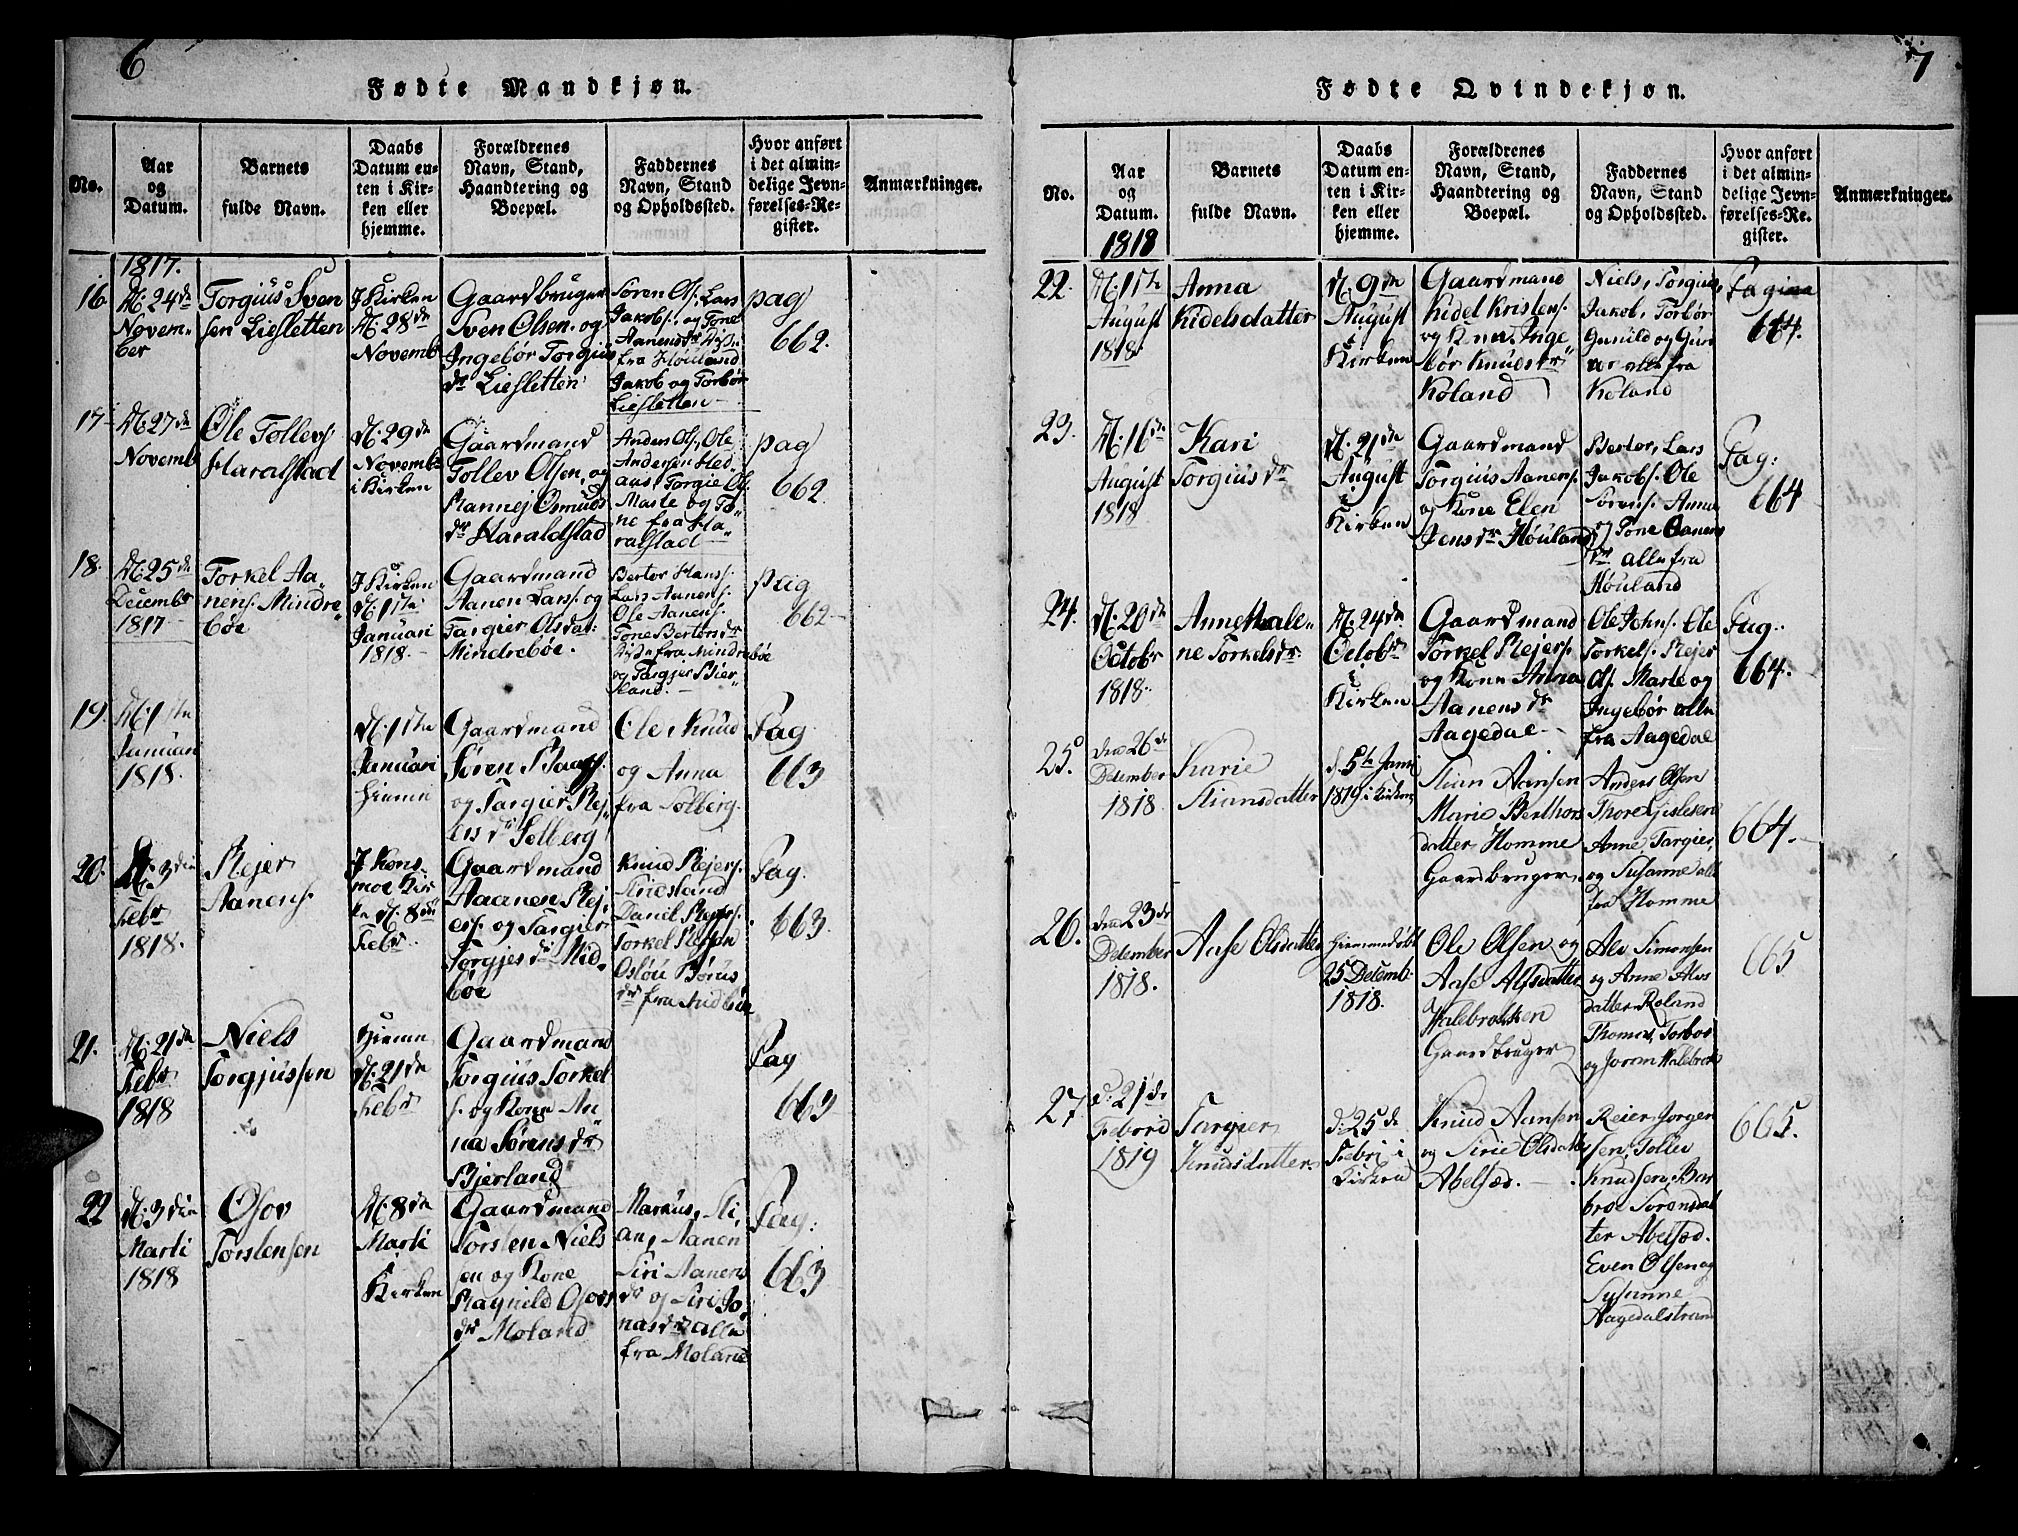 6
Fødte Mandkjøn.
No.
Aar
og
Datum.
Barnets
fulde Navn.
Daabs
Datum en-
ten i Kir-
ken eller
hjemme.
Forældrenes
Navn, Stand,
Haandtering og
Boepæl.
Faddernes
Navn, Stand
og Opholdssted.
Hvor anført
i det almin-
delige Jevn-
førelses-Re-
gister.
Anmærkninger.
1817.
16.
D. 24de
Novem-
ber
Torgius Sven
sen Liesletten
J Kirken
D. 28de
Novembr
Gaardbruger
Sven Olsen og
Ingebør Torgius
dr Liesletten
Søren Ols. Lars
Jakobs. og Tone
Aanensdr
fra Høuland
Jakob og Torbør
Liesletten
pag
662.
17
D. 27de
Novemb
Ole Tollevs.
Haralstad
D. 29de
Novembr
i Kirken
Gaardmand
Tollev Olsen, og
Rannej Osmuds
dr Haraldstad
Anders Ols, Ole
Andersen Hed-
aus, Torgie Ols.
Marte og To-
ne fra Ha-
ralstad
pag
662.
18.
D. 25de
Decembr
1817
Torkel Aa-
nens. Mindre-
bøe
J Kirken
D. 1ste
Januari
1818.
Gaardmand
Aanen Lars. og
Targier Olsdat:
Mindrebøe.
Bertor Hans.
Lars Aanens.
Ole Aanens.
Tone Bertorsdr
fra Mindrebøe
og Targjer Bier-
land.
pag
662
19.
D. 1ste
Januari
1818.
D. 1ste
Januari
Hiemme
Gaardmand
Søren
og Targier Rej-
ersdr Solberg
Ole, Knud
og Anna
fra Solberg.
Pag
663
20.
D. 3die
Febr
1818.
Rejer
Aanens.
J Kons-
moe Kir-
ke D. 8de
Febr.
Gaardmand
Aanen Rej-
ers. og Targier
Torgjersdr Mid-
bøe
Knud Rejers.
Daniel Rejers.
Torkel
fra Midbøe
Pag.
663.
21.
D. 21de
Febr
1818
Niels
Torgjussen
Hjemme
D. 21de
Febr
Gaardmand
Torgius Torkel
s. og Kone An-
na Sørensdr
Bjerland
Pag
663
22
D. 3die
Marti
1818
Osov
Torstensen
D. 8de
Marti
i
Kirken
Gaardmand
Torsten Niels
en og Kone
Ragnild Osovs
dr Moland
Markus, Sti-
an, Aanen
Siri Aanens
dr og Siri Jo-
nasdr alle
fra Moland
Pag:
663
7
Fødte Qvindekjøn.
No.
Aar
og
Datum.
1818
Barnets
fulde Navn.
Daabs
Datum en-
ten i Kir-
ken eller
hjemme.
Forældrenes
Navn, Stand,
Haandtering og
Boepæl.
Faddernes
Navn, Stand
og Opholdssted.
Hvor anført
i det almin-
delige Jevn-
førelses-Re-
gister.
Anmærkninger.
22.
D. 1ste
August
1818
Anna
Kidelsdatter
D. 9de
August
i
Kirken
Gaardmand
Kidel Kristens.
og Kone Inge
bør Knudsdr
Køland
Niels, Torgius,
Jakob, Torbør
Gunild og Gur
alle fra
Køland
Pagina
664.
23.
D. 16de
August
1818
Kari
Torgiusdr
D. 21de
August
i
Kirken
Gaardmand
Torgius Aanens.
og Kone Elen
Jensdr Høuland
Bertor, Lars
Jakobs. Ole
Sørens. Anna
og Tone Aanens
dr alle fra
Høuland
Pag:
664
24.
D. 20de
Octobr
1818.
Anne Male-
ne Torkelsdr.
D. 24de
Octobr
i
Kirken
Gaardmand
Torkel Rejers.
og Kone Anna
Aanensdr
Aagedal
Ole Johns. Ole
Torkels. Rejer
Ols. Marte og
Ingebør alle
fra Aagedal
Pag.
664.
25.
den 26de
Desember
1818
Karie
Stiansdatter
d. 5te Janu
1819 i Kirken
Stian Aansen
Marie Berthors
datter Homme
Gaardbruger
Anders Olsen
Thore Gislesen
Anne, Targier,
og Susanne alle
fra Homme
664.
26.
den 23de
Desember
1818.
Aase Olsdatter
Hiemmedøbt
25 Decemb
1818.
Ole Olsen og
Aase Alfsdatter
Halebrækken
Gaardbruger
Alv Simonsen
og Anne Alvs
datter Roland
Thomas, Torbor
og Joren Halebræk
665
27
d: 21de
Febori
1819
Targier
Knudsdatter
d: 25de
Febri i
Kirken
Knud Aansen
og Sirie Olsdatter
Abelsæd.
Reier Jorgen
sen, Tollev
Knudsen, Bar
bro Sorensdat
ter Abelsæd.
Even Olsen og
Susanne
Aagedalstrand
665.